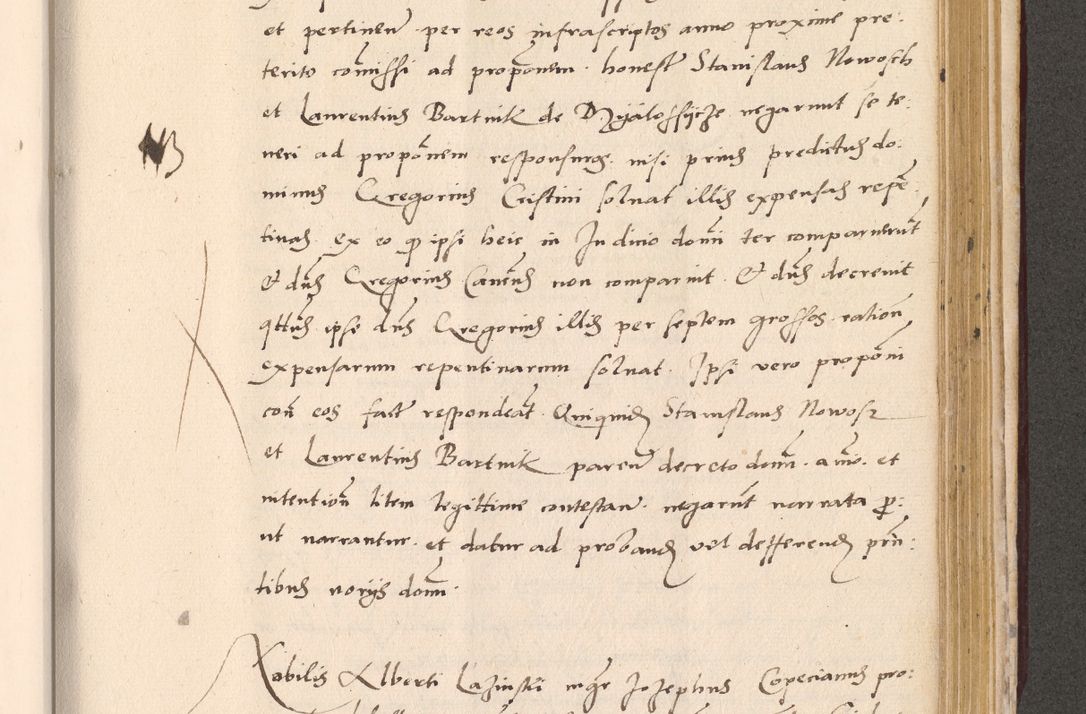 et pertinen̄ per reos infrascriptos anno proxime pre:
terito com̄issi ad propōnem honest̄ Stanislaus Nowosch
et Laurentius Bartnik de Dzialossijcze negarunt se te:
NB
neri ad propōnem responsuros nisi prius predictus do:
minus Gregorius Cristini soluat illis expensas repē
tinas ex eo qz ipsi heic in Iudicio dom̄i ter comparuerūt
Et dn̄s Gregorius Canēus non comparuit. Et dn̄s decreuit
qttus ipse dn̄s Gregorius illis per septem grossos ration̄
expensarum repentinarum soluat. Ipsi vero propōni
con̄ eos fact̄ respondeāt. Quiquid Stanislaus Nowosz
et Laurentius Bartnik paren̄ decreto dom̄. animo et
intentiōn litem legittime contestan̄ negarūt narrata p̱:
ut narrantur et datur ad proband vel defferend prn̄:
tibus vorijs dom̄.
Nobilis Alberti Lazinski mg̅r Jozephus Copecianus pro: